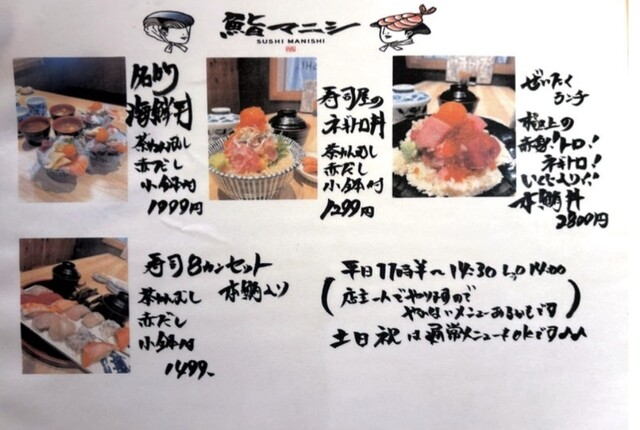 鮨マニシ
SUSHI MANISHI
名物
海鮮丼
茶わんむし
赤だし
小鉢付
1999円
寿司屋の
ネギトロ丼
茶わんむし
赤だし
小鉢付
1299円
ぜいたく
ランチ
極上の
赤身!トロ!
ネギトロ!
いくら入り!
本鮪丼
2800円
寿司8カンセット
本鮪入り
茶わんむし
赤だし
小鉢付
1499
平日11時半〜14:30 14:00
(店主一人でやってますので
やらないメニューあるかもです)
土日祝は通常メニューもOKです